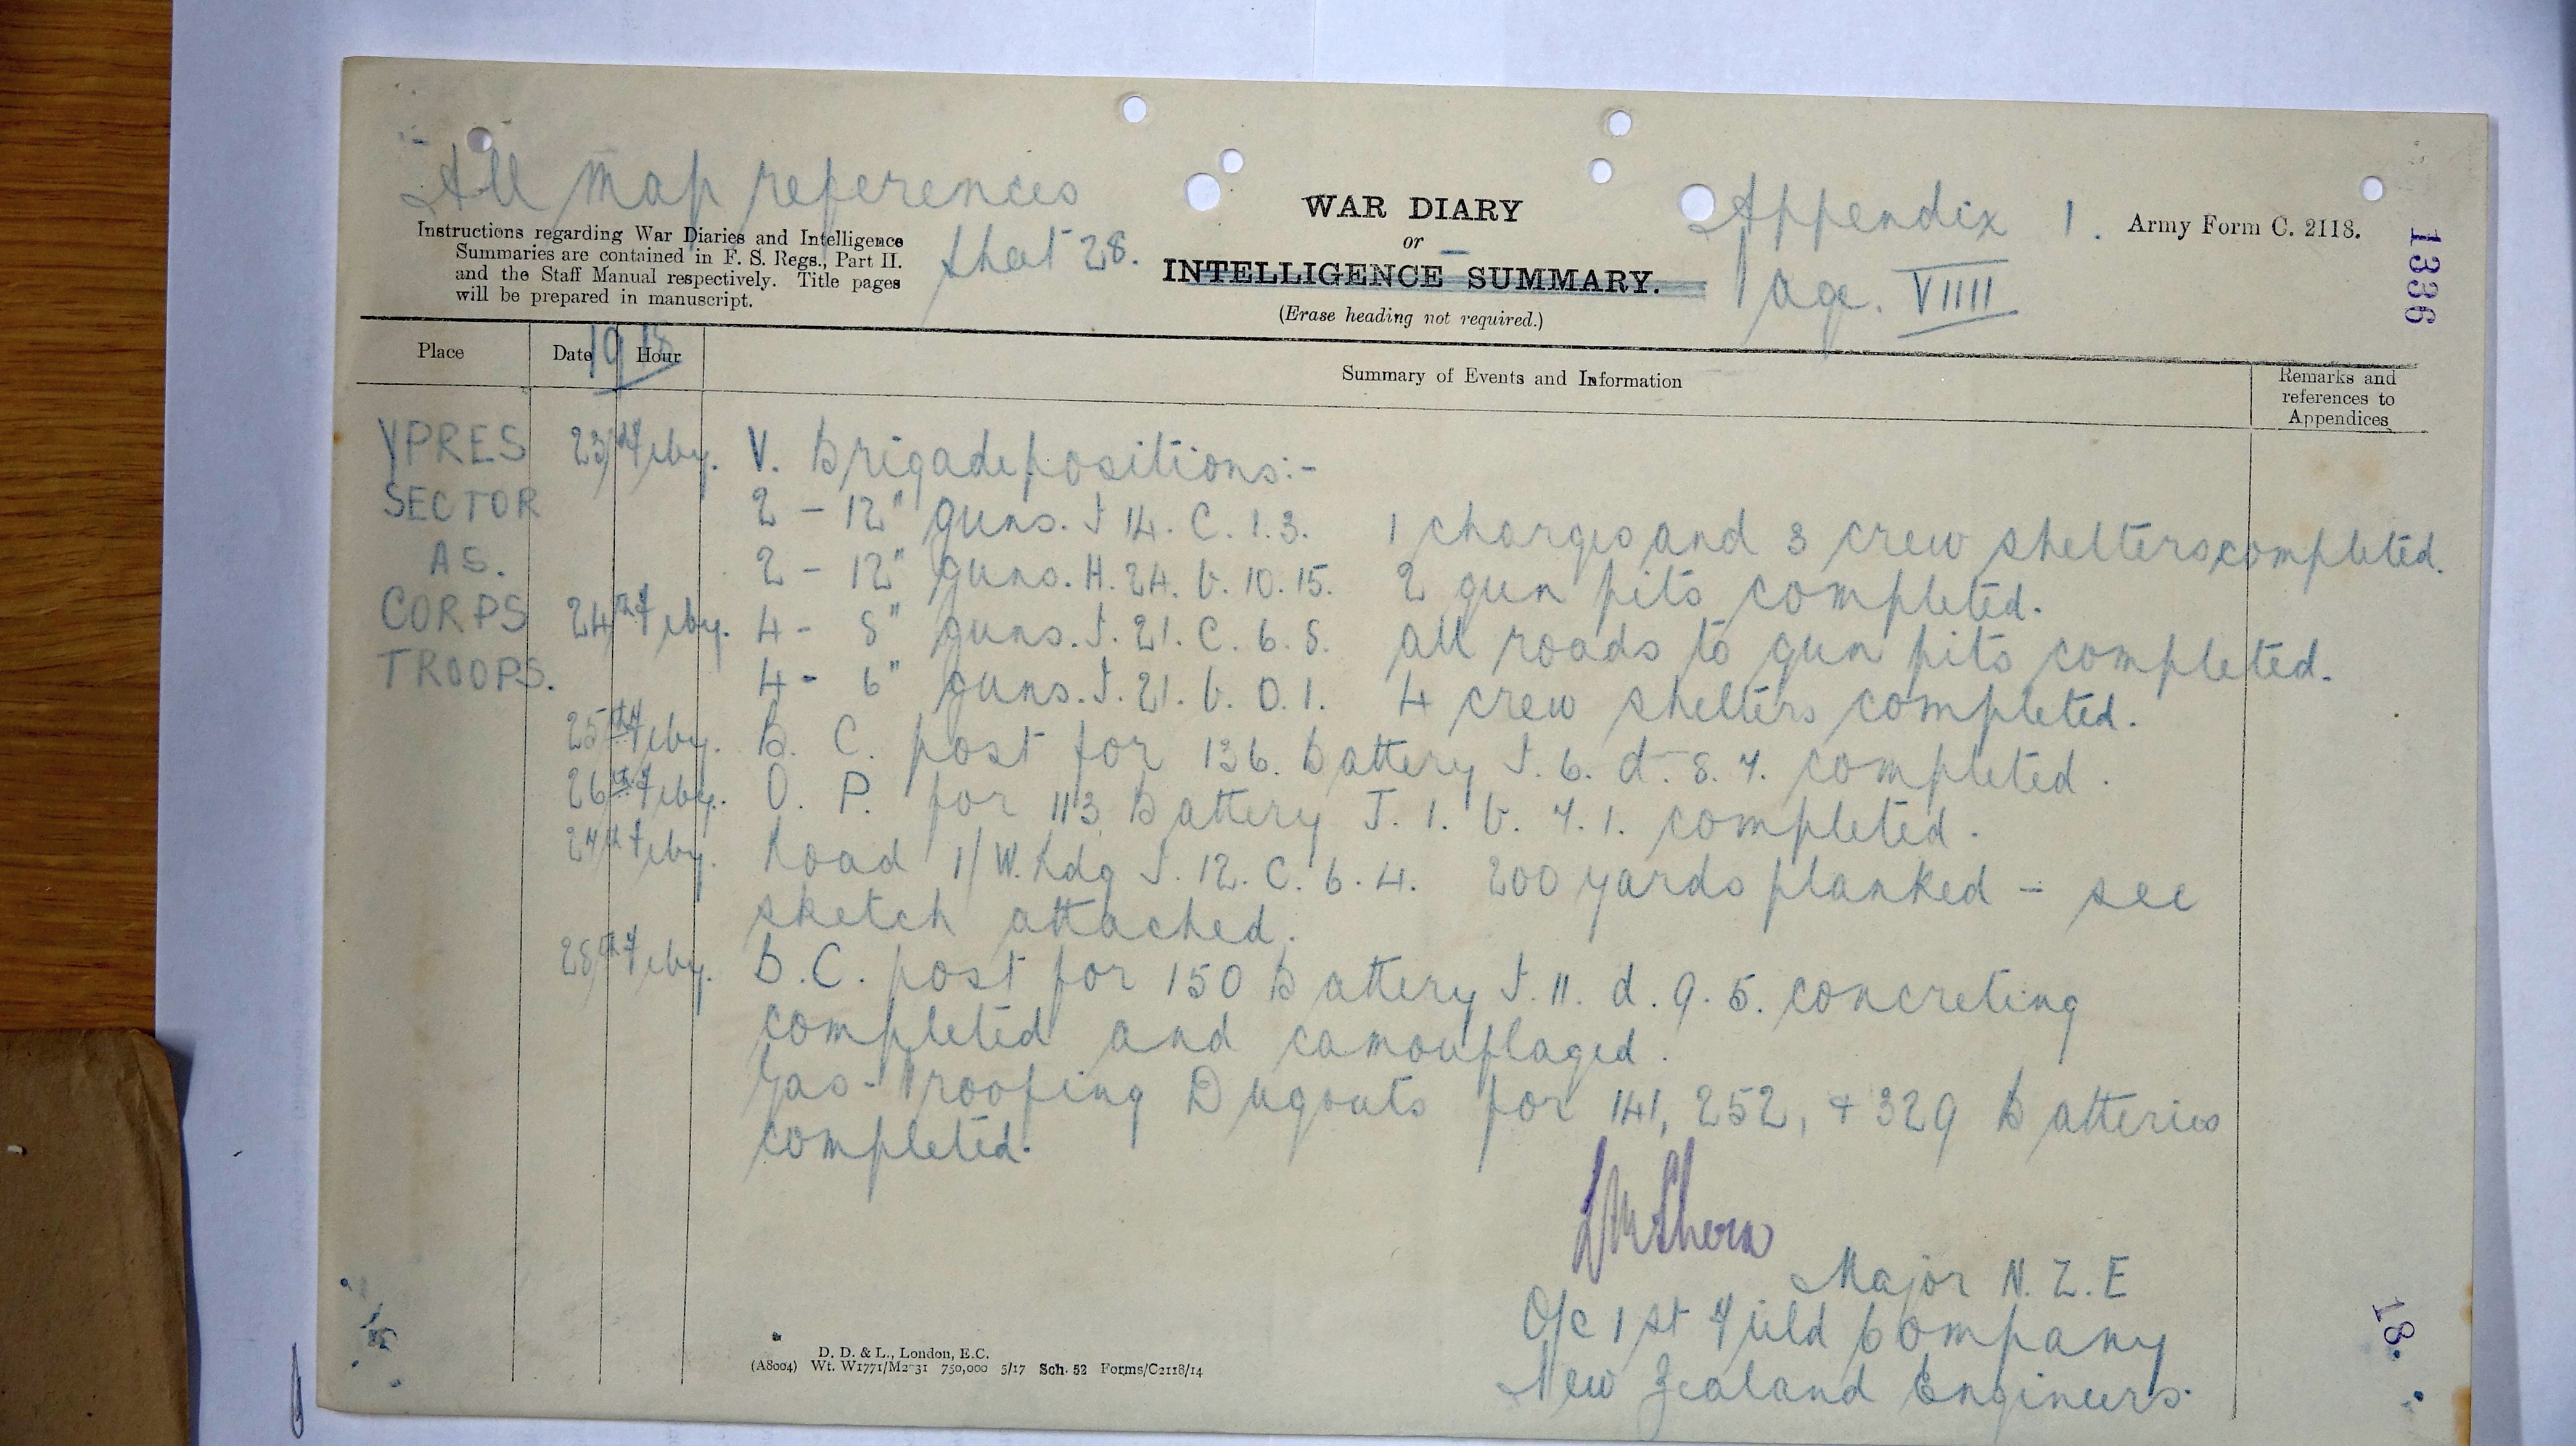 All map references
sheet 28.
Instructions regarding War Diaries and Intelligence
Summaries are contained in F. S. Regs., Part II.
and the Staff Manual respectively. Title pages
will be prepared in manuscript.
WAR DIARY
or
INTELLIGENCE SUMMARY.
(Erase heading not required.)
Appendix 1.
Page. VIIII
Army Form C. 2118.
1336
1918
Place
Date
Hour
Summary of Events and Information
Remarks and
references to
Appendices
YPRES
SECTOR
AS.
CORPS
TROOPS.
23rd Feby. V. Brigade positions:-
2 - 12" guns. J 14. C. 1.3. 1 charges and 3 crew shelters completed.
2 - 12" guns. H. 24. b. 10. 15. 2 gun pits completed.
24th Feby. 4 - 8" guns. J. 21. C. 6. 8. all roads to gun pits completed.
4 - 6" guns. J. 21. b. 0. 1. 4 crew shelters completed.
25th Feby. B. C. post for 136. Battery J. 6. d. 8. 7. completed.
26th Feby. O. P. for 113 Battery J. 1. b. 7. 1. completed.
27th Feby. Road 1/W. Rdg J. 12. C. 6. 4. 200 yards planked - see
sketch attached.
28th Feby. B.C. post for 150 Battery J. 11. d. 9. 5. concreting
completed and camouflaged.
Gas-Proofing Dugouts for 141, 252, + 329 Batteries
completed.
Major N. Z. E
O/c 1st Field Company
New Zealand Engineers.
D. D. & L., London, E.C.
(A8004) Wt. W1771/M2031 750,000 5/17 Sch. 52 Forms/C2118/14
18.